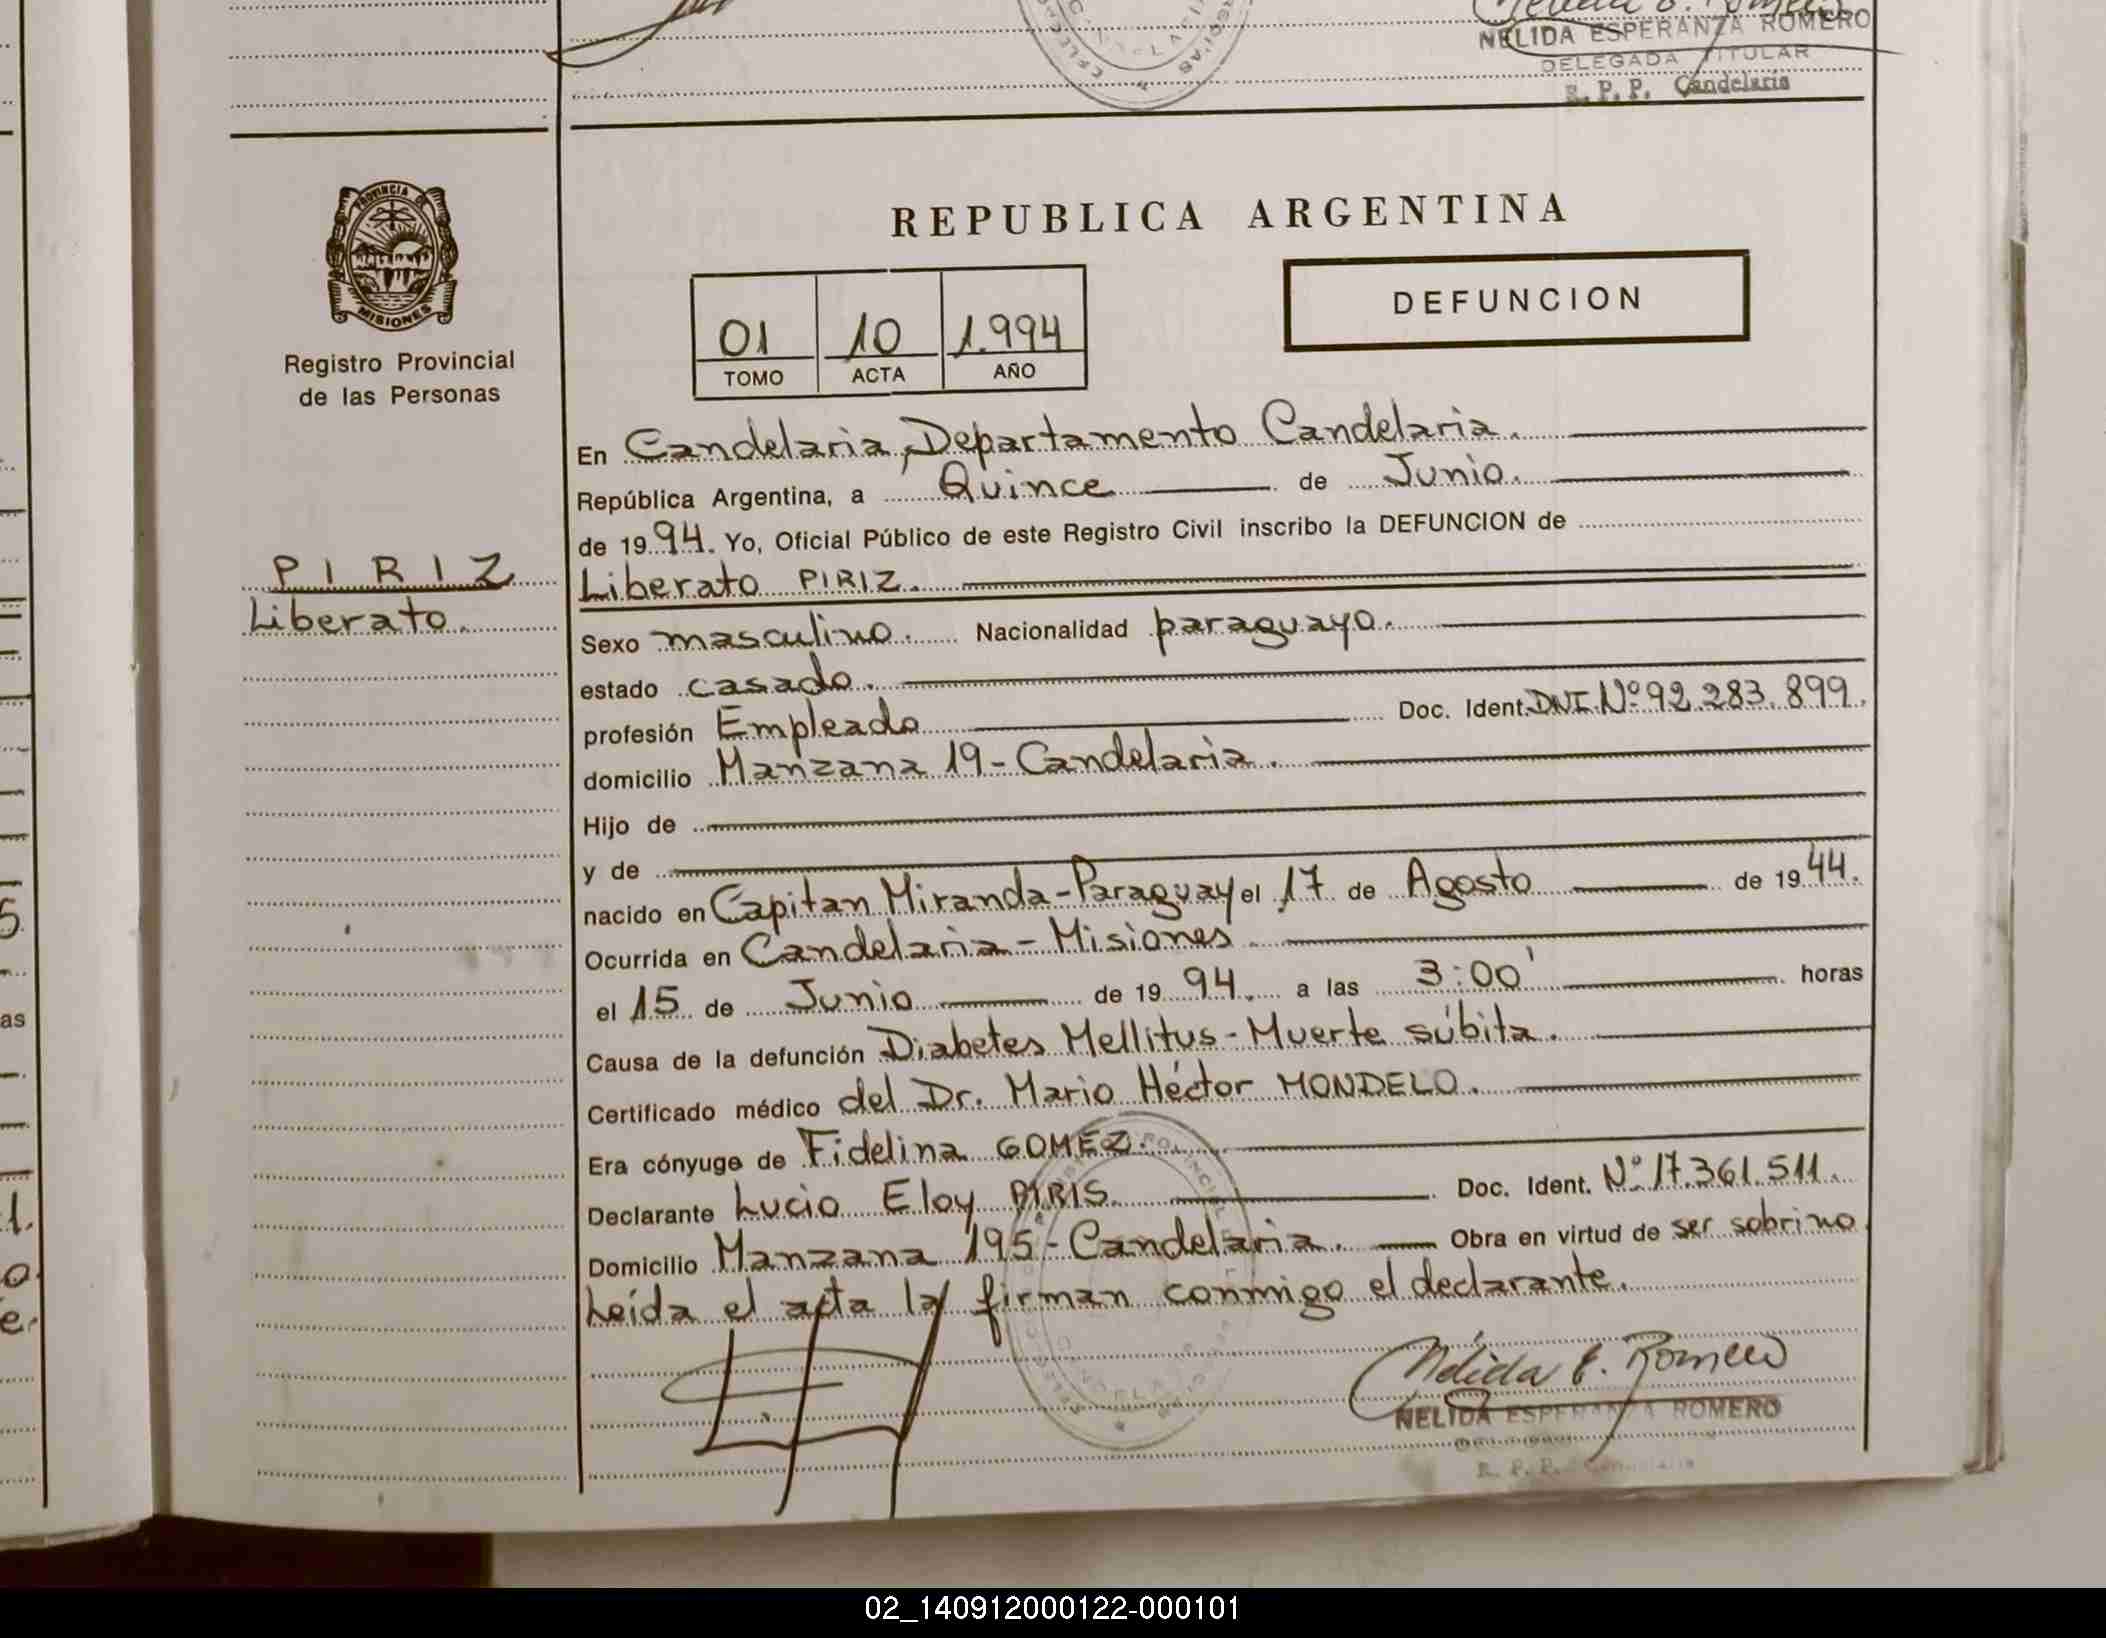 Nelida E. Romero
NELIDA ESPERANZA ROMERO
DELEGADA TITULAR
R. P. P. Candelaria
PROVINCIA DE
MISIONES
Registro Provincial
de las Personas
REPUBLICA ARGENTINA
01 10 1.994
TOMO ACTA AÑO
DEFUNCION
En Candelaria, Departamento Candelaria.
República Argentina, a Quince de Junio.
de 1994. Yo, Oficial Público de este Registro Civil inscribo la DEFUNCION de
PIRIZ
Liberato.
Liberato PIRIZ.
Sexo masculino. Nacionalidad paraguayo.
estado casado.
profesión Empleado Doc. Ident. DNI. Nº 92.283.899.
domicilio Manzana 19 - Candelaria.
Hijo de
y de
nacido en Capitan Miranda - Paraguay el 17 de Agosto de 1944.
Ocurrida en Candelaria - Misiones
el 15 de Junio de 1994. a las 3:00' horas
Causa de la defunción Diabetes Mellitus - Muerte súbita.
Certificado médico del Dr. Mario Héctor MONDELO.
Era cónyuge de Fidelina GOMEZ.
Declarante Lucio Eloy PIRIS. Doc. Ident. Nº 17.361.511.
Domicilio Manzana 195 - Candelaria. Obra en virtud de ser sobrino
Leída el acta la firman conmigo el declarante.
Nélida E. Romero
NELIDA ESPERANZA ROMERO
R. P. P. Candelaria
02_140912000122-000101